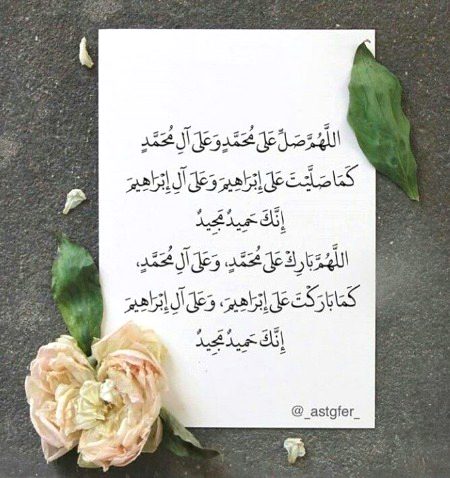 اللَّهُمَّ صَلِّ عَلَى مُحَمَّدٍ وَعَلَى آلِ مُحَمَّدٍ
كَمَا صَلَّيْتَ عَلَى إِبْرَاهِيمَ وَعَلَى آلِ إِبْرَاهِيمَ
إِنَّكَ حَمِيدٌ مَجِيدٌ
اللَّهُمَّ بَارِكْ عَلَى مُحَمَّدٍ، وَعَلَى آلِ مُحَمَّدٍ،
كَمَا بَارَكْتَ عَلَى إِبْرَاهِيمَ، وَعَلَى آلِ إِبْرَاهِيمَ
إِنَّكَ حَمِيدٌ مَجِيدٌ
@_astgfer_